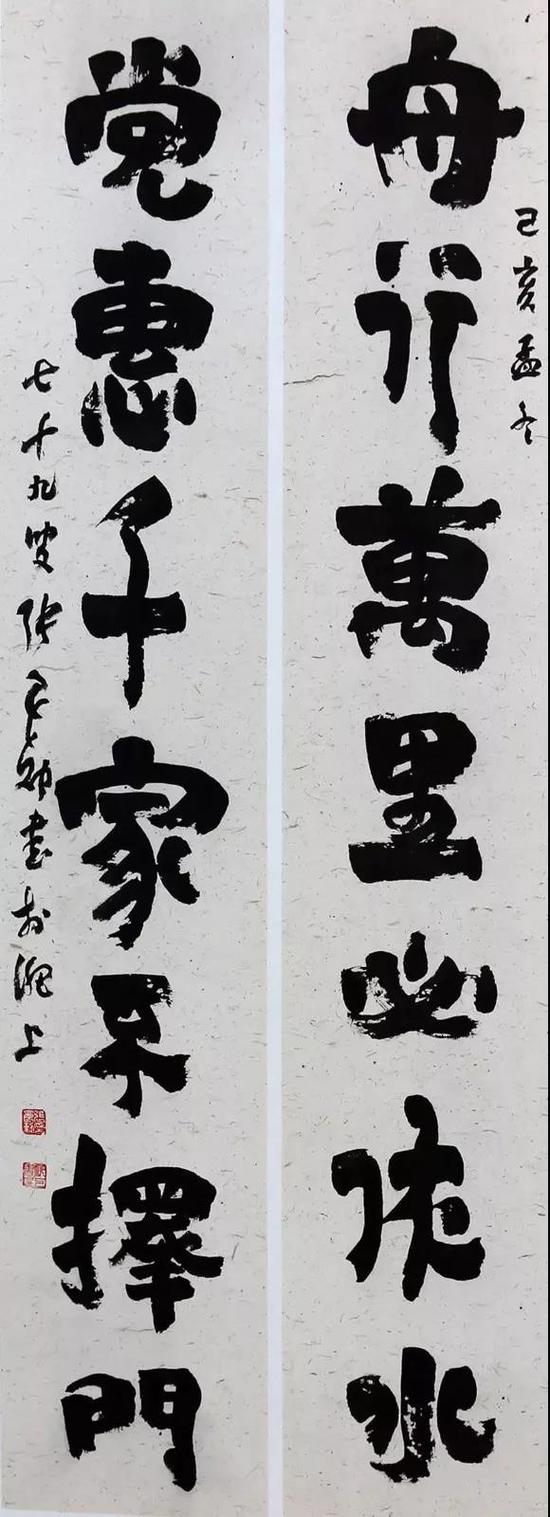 己亥孟冬
舟行萬里必依水
党惠千家不擇門
七十九叟张良勛書於淝上